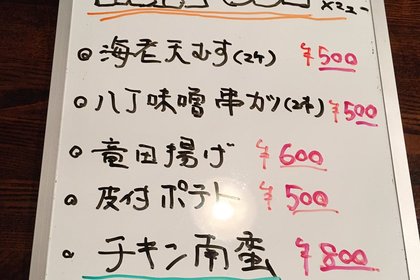 メニュー
海老天むす(2ケ) ¥500
八丁味噌串カツ(2本) ¥500
竜田揚げ ¥600
皮付ポテト ¥500
チキン南蛮 ¥800